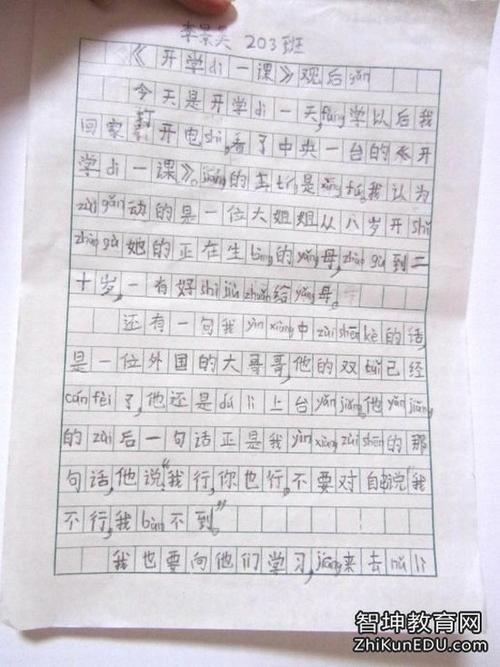 李景昊 203班
《开学di一课》观后gǎn
今天是开学di一天,fàng学以后我
回家打开电shì,看了中央一台的《开
学di一课》。jiǎng的主tí是xìng fú,我认为
zuì gǎn动的是一位大姐姐从八岁开shǐ
zhào gù她的正在生bìng的yǎng母,zhào gù到二
十岁,一有好shí jiù zhuǎn给yǎng母。
还有一句我yìn xiàng中zuì shēn kè的话,
是一位外国的大哥哥,他的双tuǐ已经
cán fèi了,他还是dú lì上台yǎn jiǎng,他yǎn jiǎng
的zuì后一句话正是我yìn xiàng zuì shēn的那
句话,他说“我行,你也行。不要对自己说“我
不行,我bàn不到。”
我也要向他们学习,jiāng来去nǔ lì
智坤教育网
ZhiKunEDU.com